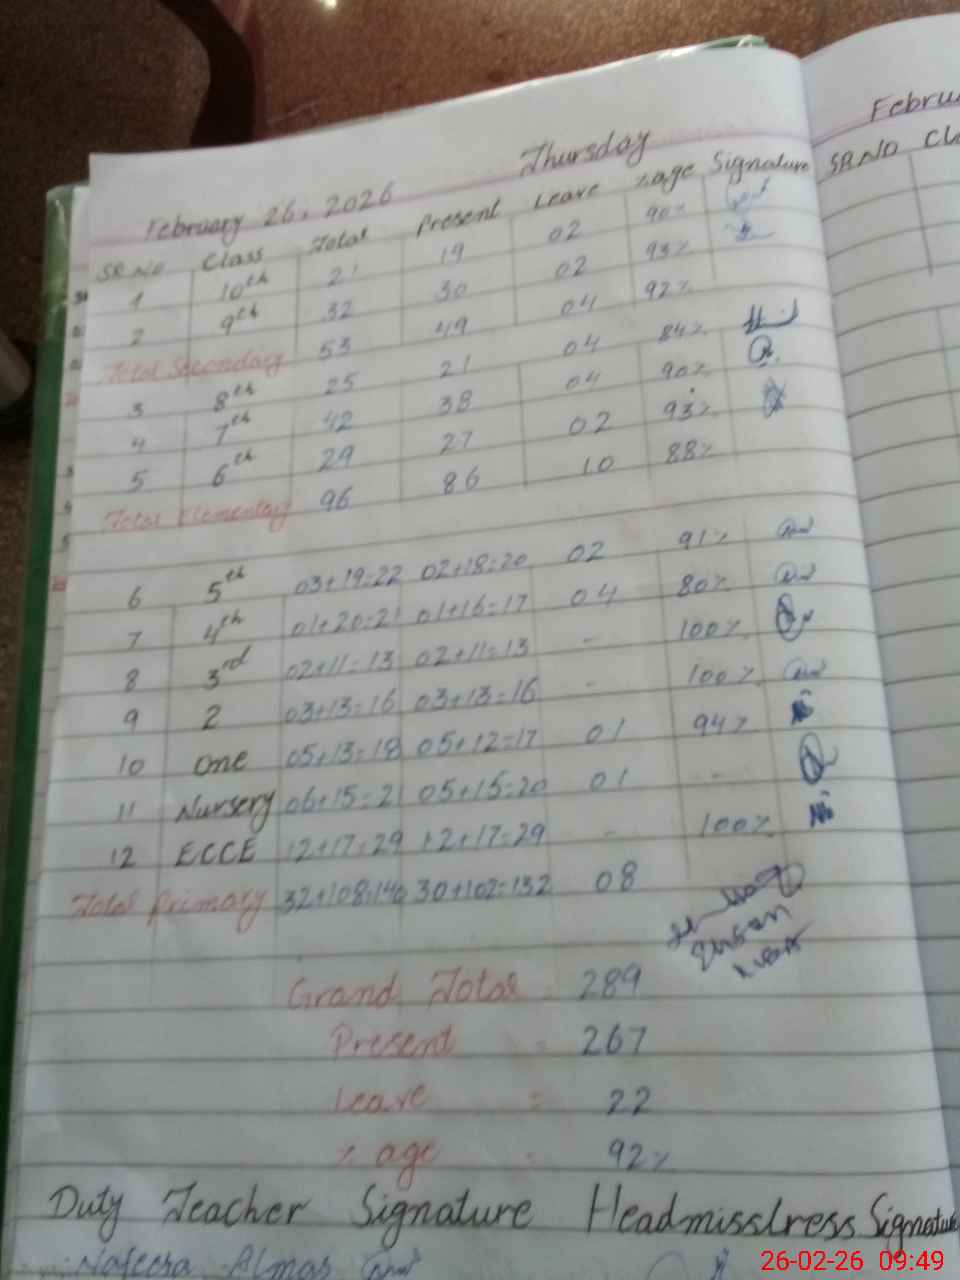 Thursday
February 26, 2026
SR No Class Total Present Leave %age Signature
1 10th 21 19 02 90%
2 9th 32 30 02 93%
Total Secondary 53 49 04 92%
3 8th 25 21 04 84%
4 7th 42 38 04 90%
5 6th 29 27 02 93%
Total Elementary 96 86 10 88%
6 5th 03+19=22 02+18=20 02 91%
7 4th 01+20=21 01+16=17 04 80%
8 3rd 02+11=13 02+11=13 - 100%
9 2 03+13=16 03+13=16 - 100%
10 One 05+13=18 05+12=17 01 94%
11 Nursery 06+15=21 05+15=20 01 -
12 ECCE 12+17=29 12+17=29 - 100%
Total Primary 32+108=140 30+102=132 08
Grand Total = 289
Present = 267
Leave = 22
% age = 92%
Duty Teacher Signature Headmisstress Signature
Nafeesa Almas
Febru
SR.NO Cl
26-02-26 09:49